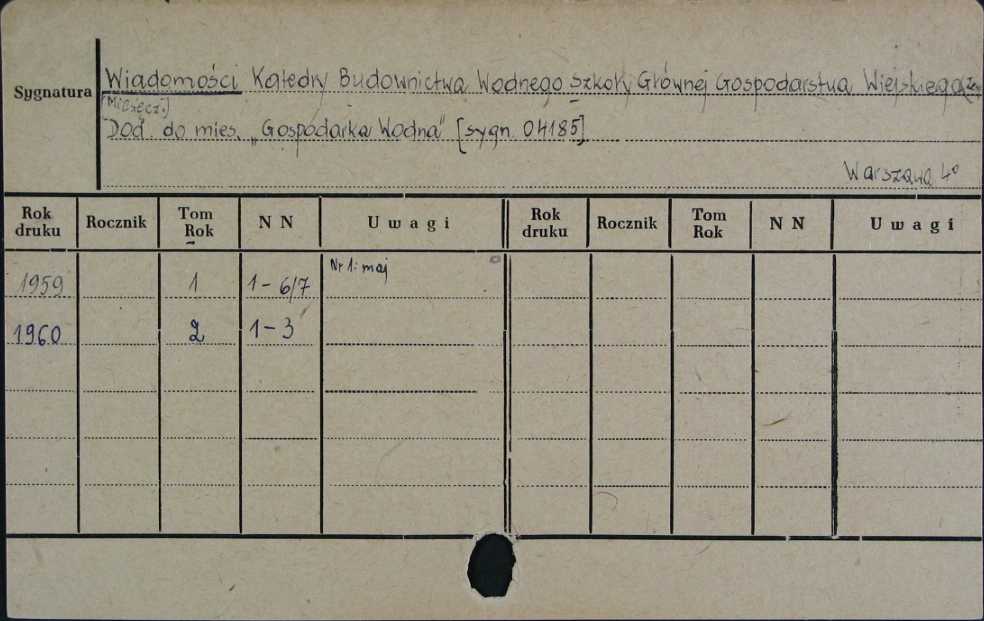 Sygnatura
Wiadomości Katedry Budownictwa Wodnego Szkoły Głównej Gospodarstwa Wiejskiego
[Miesęcz.]
Dod. do mies. „Gospodarka Wodna" [sygn. 04185]
Warszawa 4°
Rok druku Rocznik Tom Rok N N Uwagi Rok druku Rocznik Tom Rok N N Uwagi
1959 1 1-6/7 Nr 1: maj
1960 2 1-3